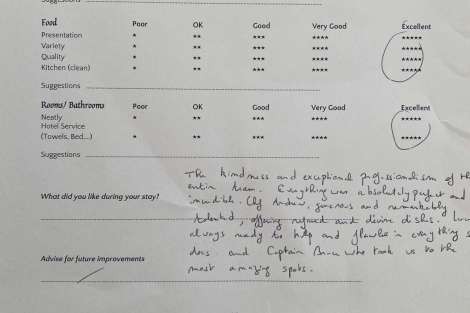 Suggestions
Food Poor OK Good Very Good Excellent
Presentation * ** *** **** *****
Variety * ** *** **** *****
Quality * ** *** **** *****
Kitchen (clean) * ** *** **** *****
Suggestions
Rooms/ Bathrooms Poor OK Good Very Good Excellent
Neatly * ** *** **** *****
Hotel Service
(Towels, Bed...) * ** *** **** *****
Suggestions
The kindness and exceptional professionalism of th
entire team. Everything was absolutely perfect and
What did you like during your stay?
incredible. Chef Andrew, generous and remarkably
talented, offering refined and divine dishes.
always ready to help and flawless in everything s
does. and Captain who took us to the
Advise for future improvements
most amazing spots.